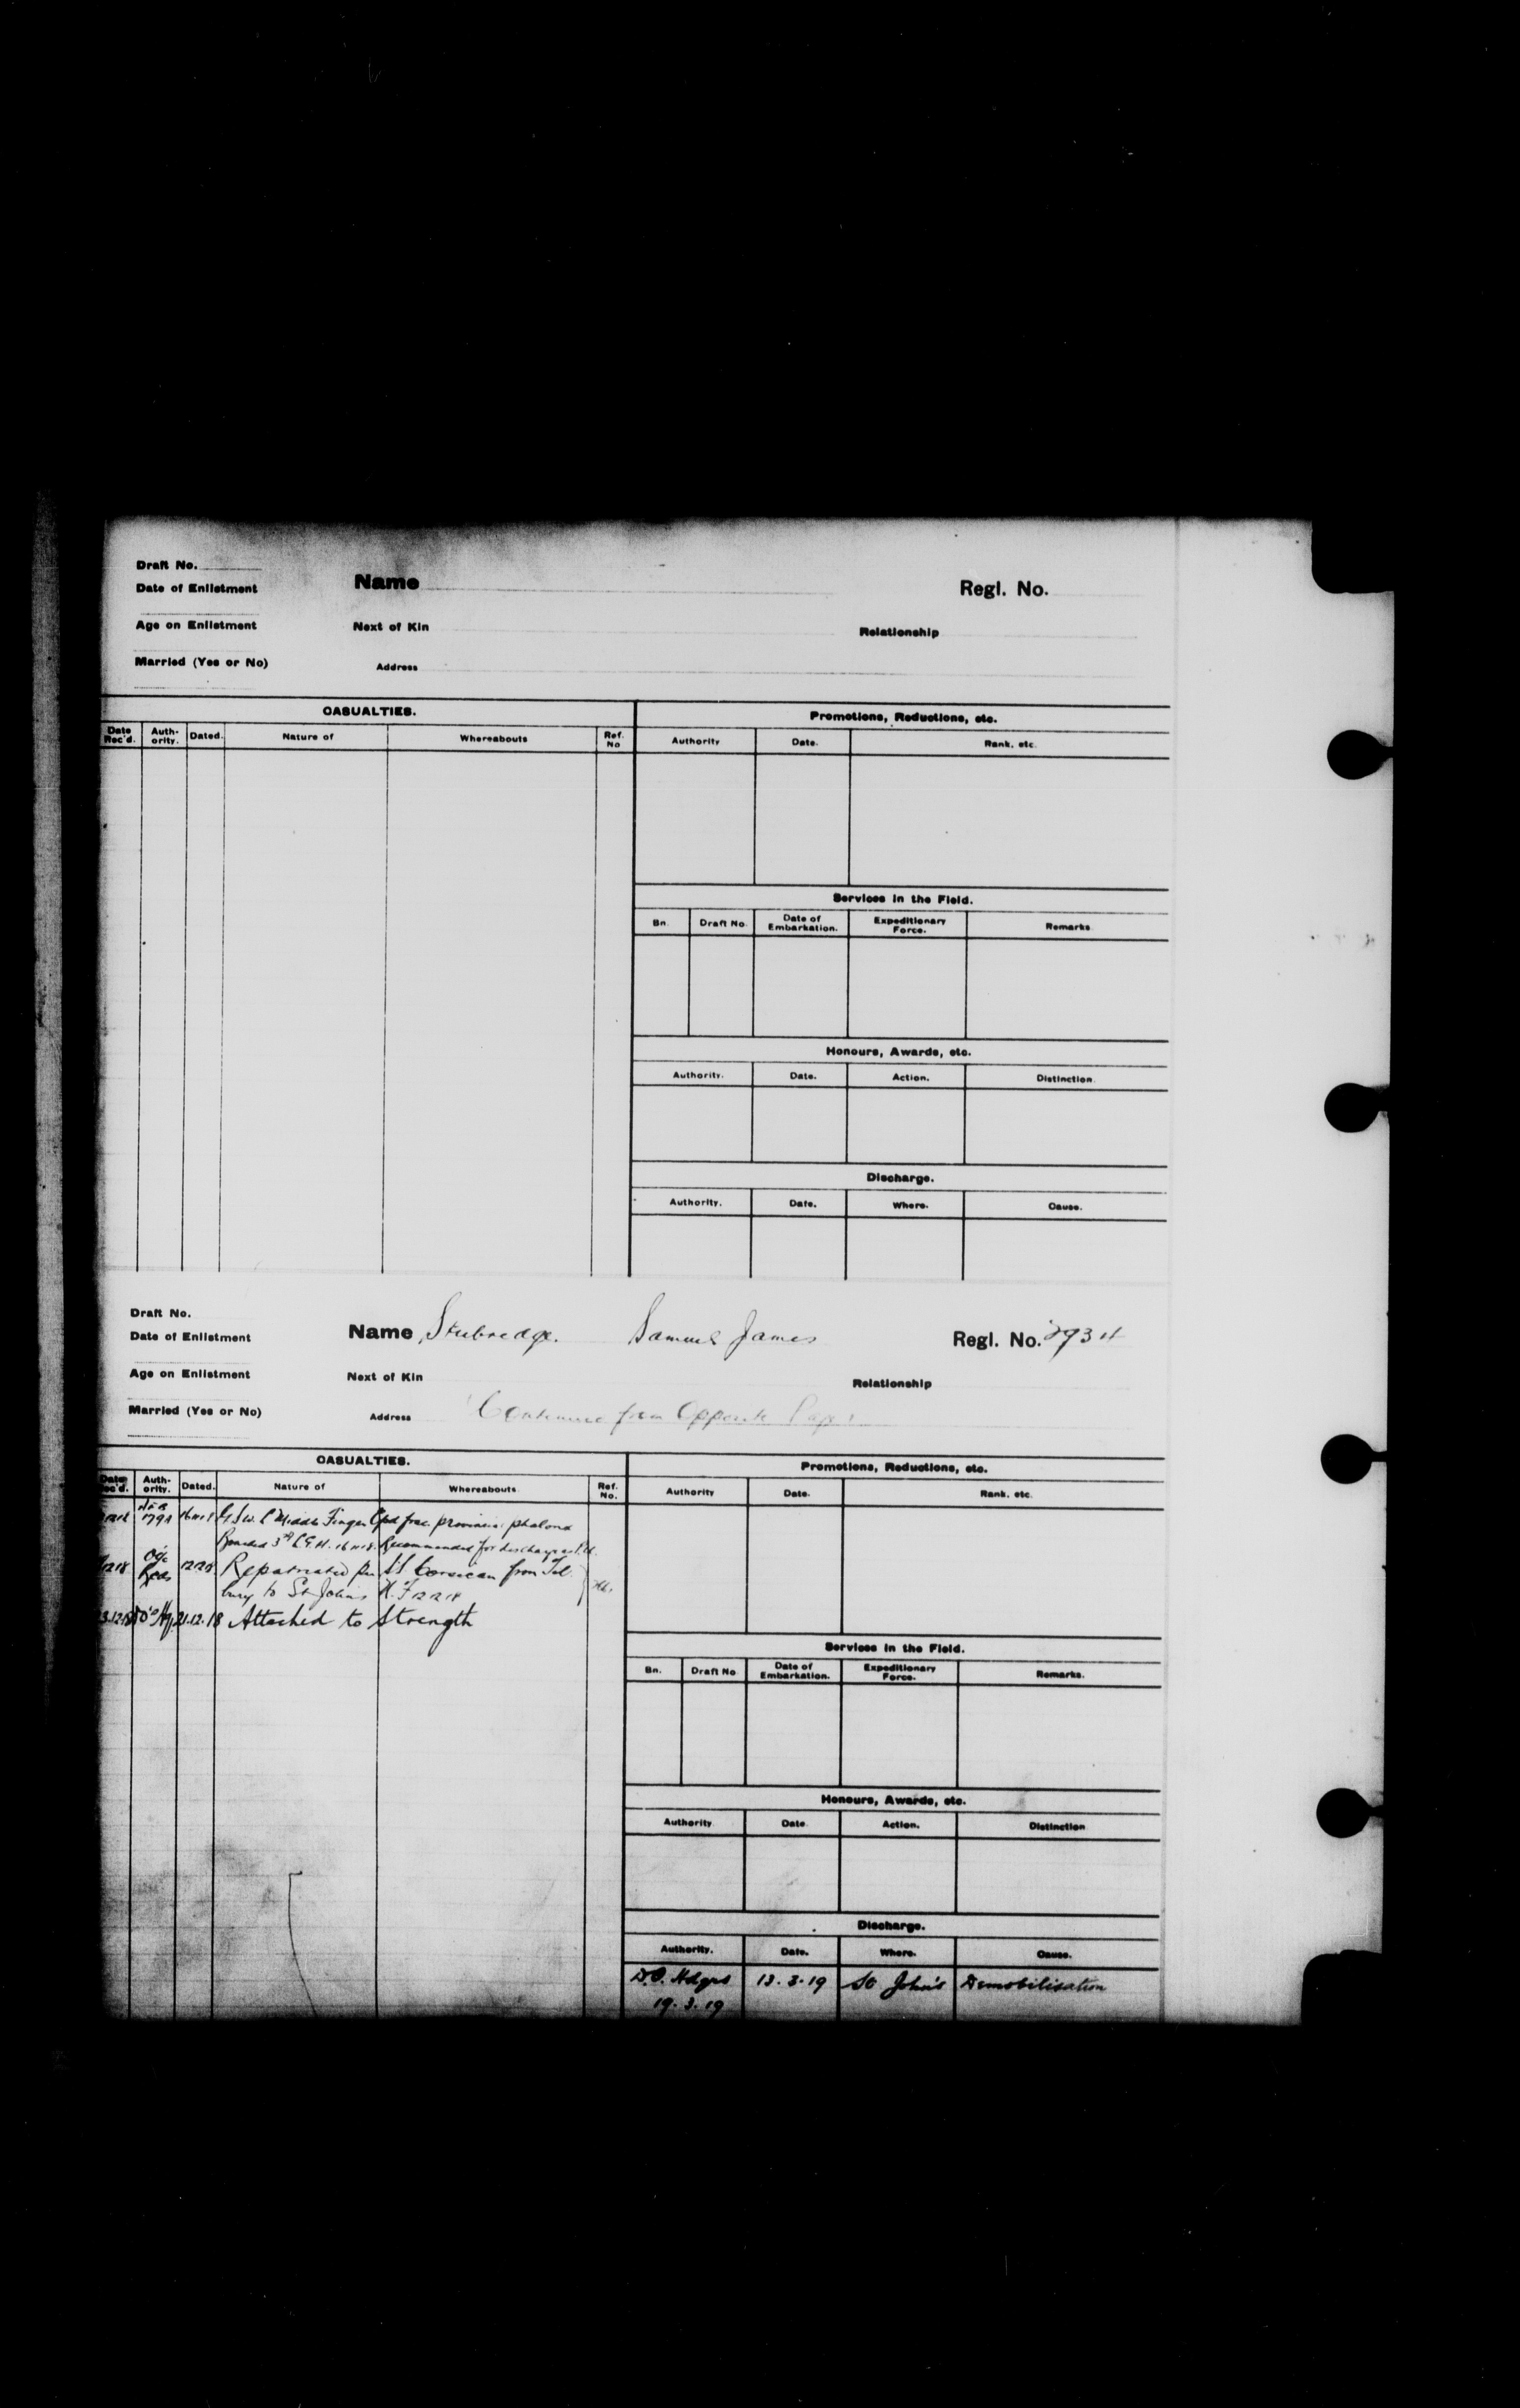 Draft No.
Date of Enlistment
Name
Regl. No.
Age on Enlistment
Next of Kin
Relationship
Married (Yes or No)
Address
CASUALTIES.
Promotions, Reductions, etc.
Date Rec'd.
Auth-ority.
Dated.
Nature of
Whereabouts
Ref. No
Authority
Date.
Rank, etc.
Services in the Field.
Bn.
Draft No.
Date of Embarkation.
Expeditionary Force.
Remarks
Honours, Awards, etc.
Authority.
Date.
Action.
Distinction.
Discharge.
Authority.
Date.
Where.
Cause.
Draft No.
Date of Enlistment
Name Samuel James
Regl. No. 2934
Age on Enlistment
Next of Kin
Relationship
Married (Yes or No)
Address from Opposite Page
CASUALTIES.
Promotions, Reductions, etc.
Date Rec'd.
Auth-ority.
Dated.
Nature of
Whereabouts
Ref. No.
Authority
Date.
Rank, etc.
G.S.W. L Middle Finger Cpd frac.
Boarded 3rd L.G.H. 16.11.18. Recommended for discharge
Repatriated per SS Corsican from Til-
bury to St Johns
21.12.18 Attached to Strength
Services in the Field.
Bn.
Draft No
Date of Embarkation.
Expeditionary Force.
Remarks.
Honours, Awards, etc.
Authority
Date
Action.
Distinction
Discharge.
Authority.
Date.
Where.
Cause.
D.O. Hdqrs 13.3.19 St John's Demobilisation
19.3.19